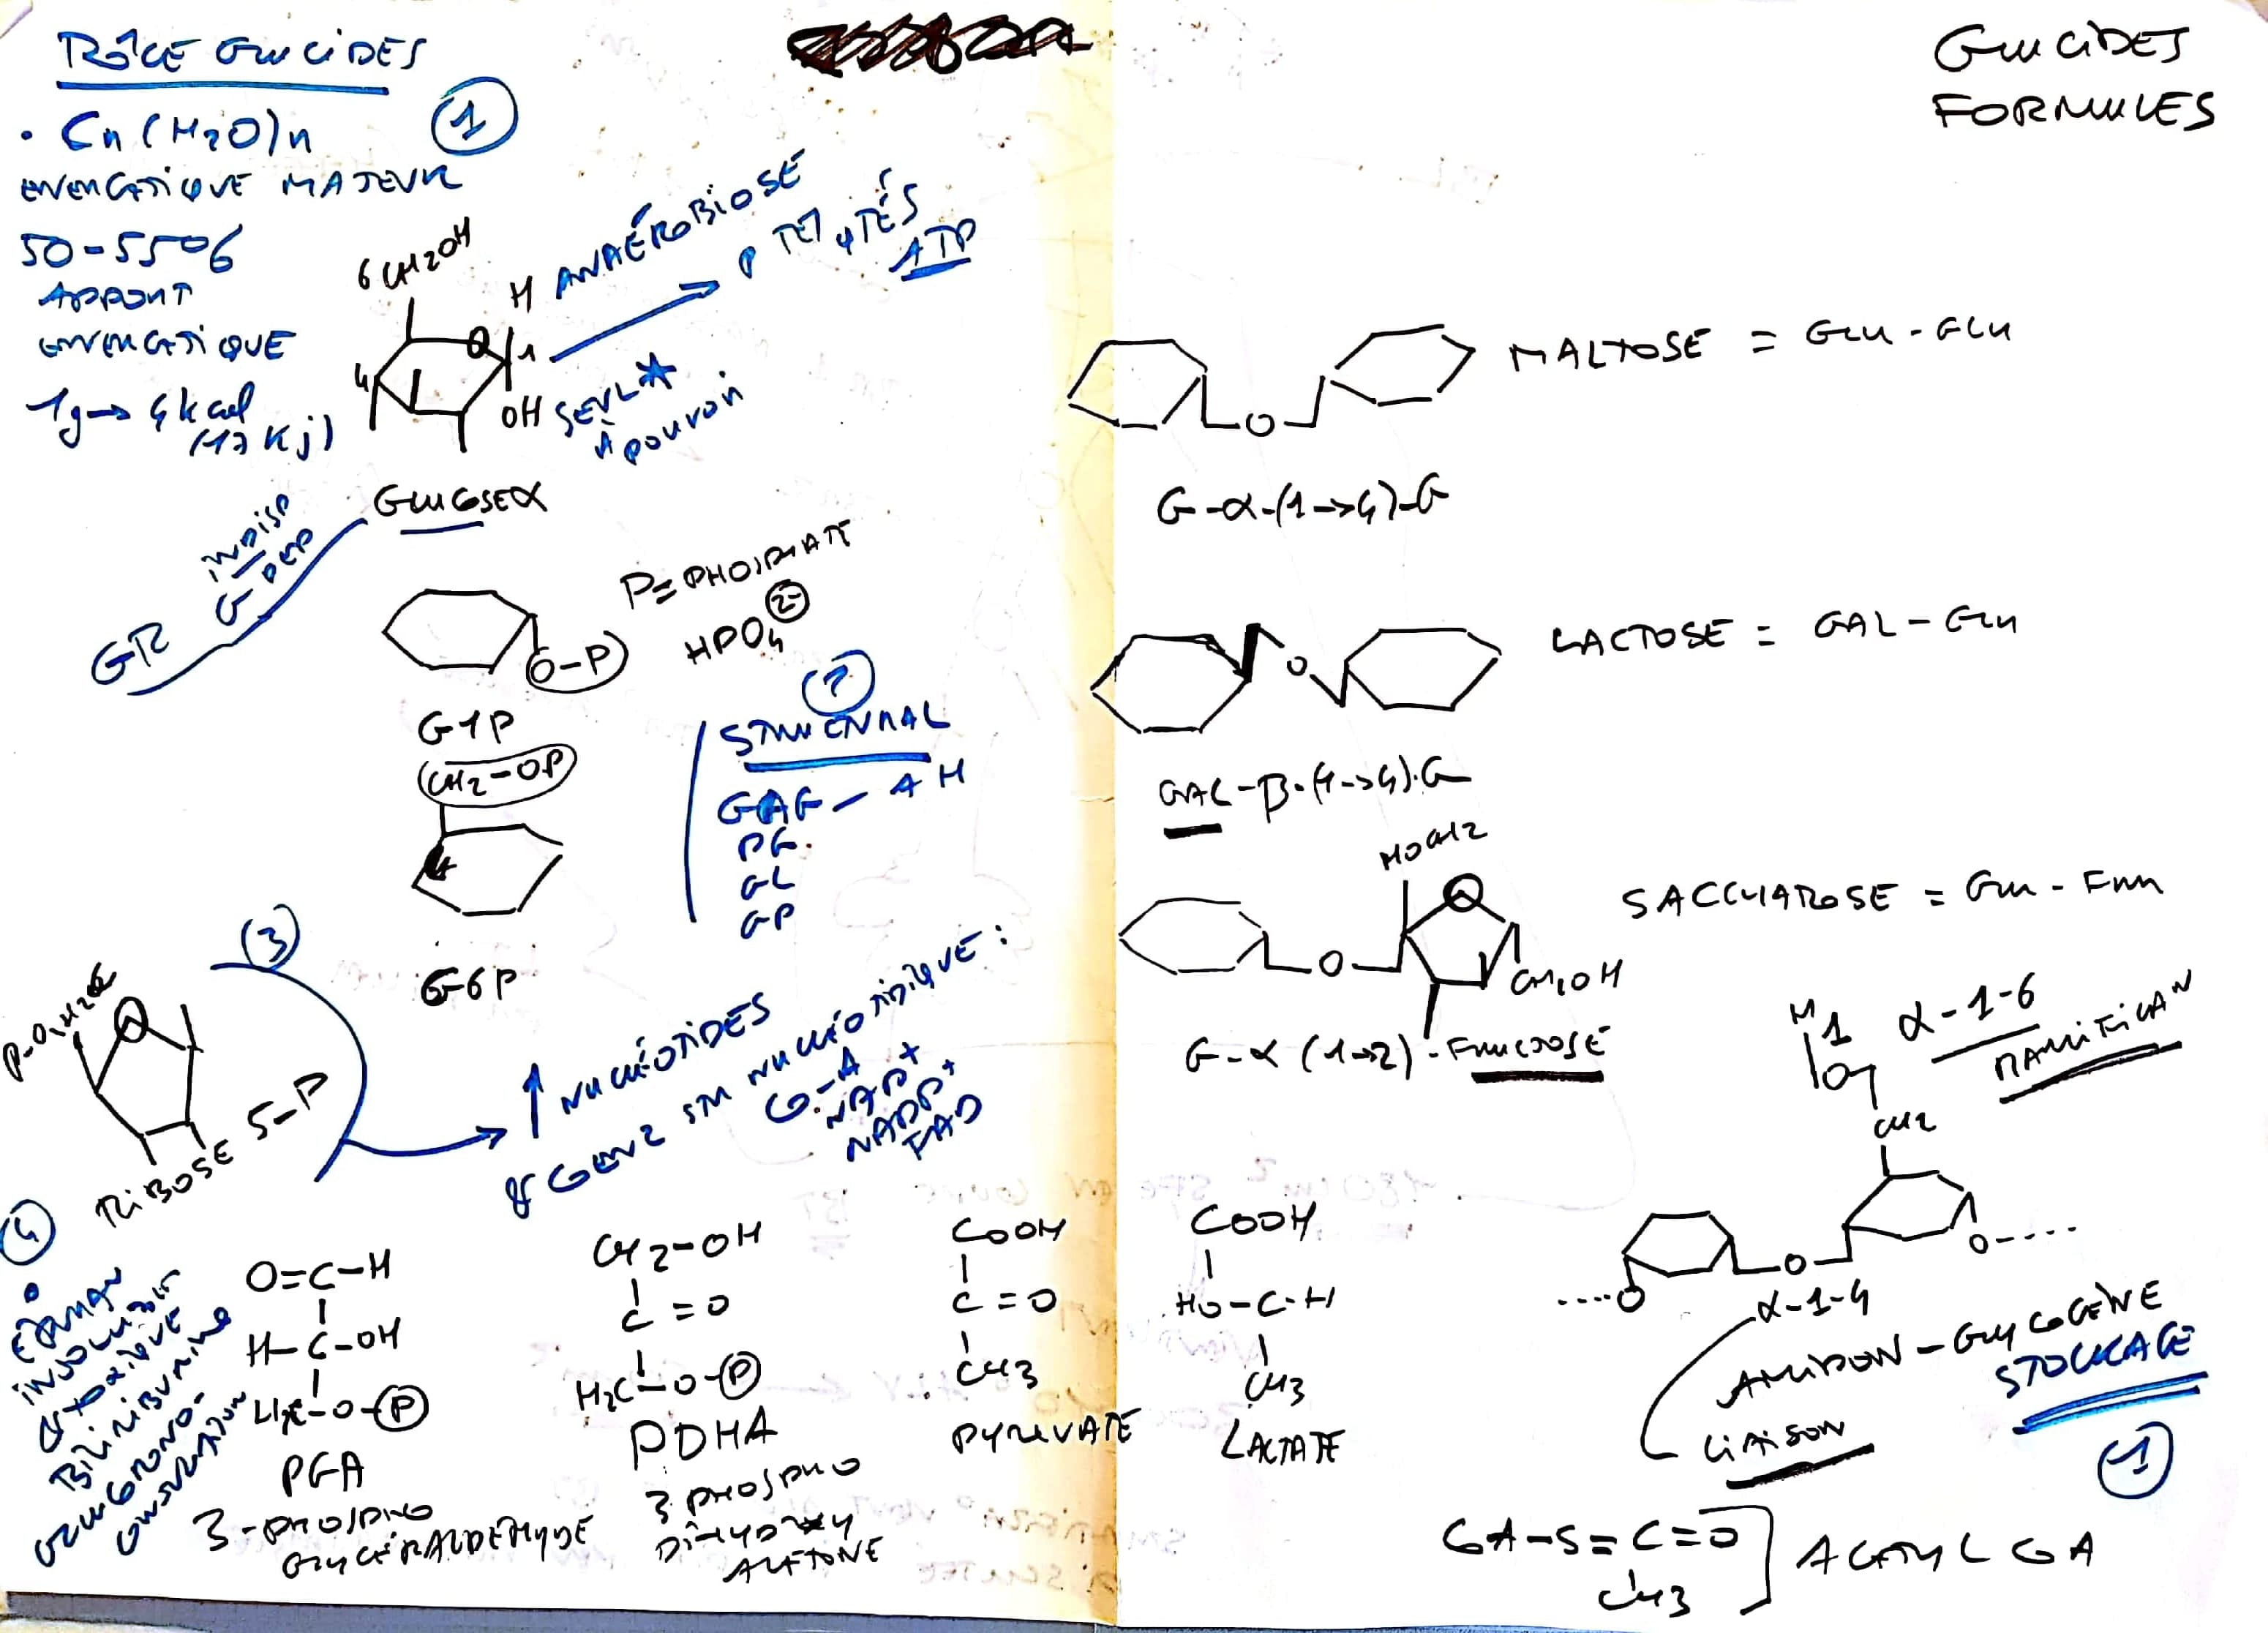 RÔLE GLUCIDES
• Cn(H2O)n
1
ENERGETIQUE MAJEUR
50-55%
APPORT
ENERGETIQUE
1g → 4kcal
(17 Kj)
6 CH2OH
H
O
1
4
OH
GLUCOSE α
ANAÉROBIOSE
SEUL *
À pouvoir
ATP
INDISP
GR
P = PHOSPHATE
HPO4 2-
O-P
G1P
CH2-OP
G6P
2
STRUCTURAL
GAG - AH
PG
GL
GP
3
O
RIBOSE 5-P
↑ NUCLÉOTIDES
NUCLÉOTIDIQUE :
CoA
NAD+
NADP+
FAD
4
BILIRUBINE
O=C-H
H-C-OH
H2C-O-P
PGA
3-PHOSPHO
GLYCÉRALDEHYDE
CH2-OH
C=O
H2C-O-P
PDHA
3 PHOSPHO
DIHYDROXY
ACETONE
COOH
C=O
CH3
PYRUVATE
COOH
HO-C-H
CH3
LACTATE
GLUCIDES
FORMULES
O
MALTOSE = GLU - GLU
G-α-(1→4)-G
O
LACTOSE = GAL - GLU
GAL-β-(1→4)-G
HOCH2
O
O
CH2OH
SACCHAROSE = Glu - Fru
G-α (1→2) - FRUCTOSE
1
α-1-6
RAMIFICAN
CH2
....O
O
O....
α-1-4
AMIDON - GLYCOGÈNE
STOCKAGE
LIAISON
1
CoA-S=C=O
CH3
ACETYL CoA